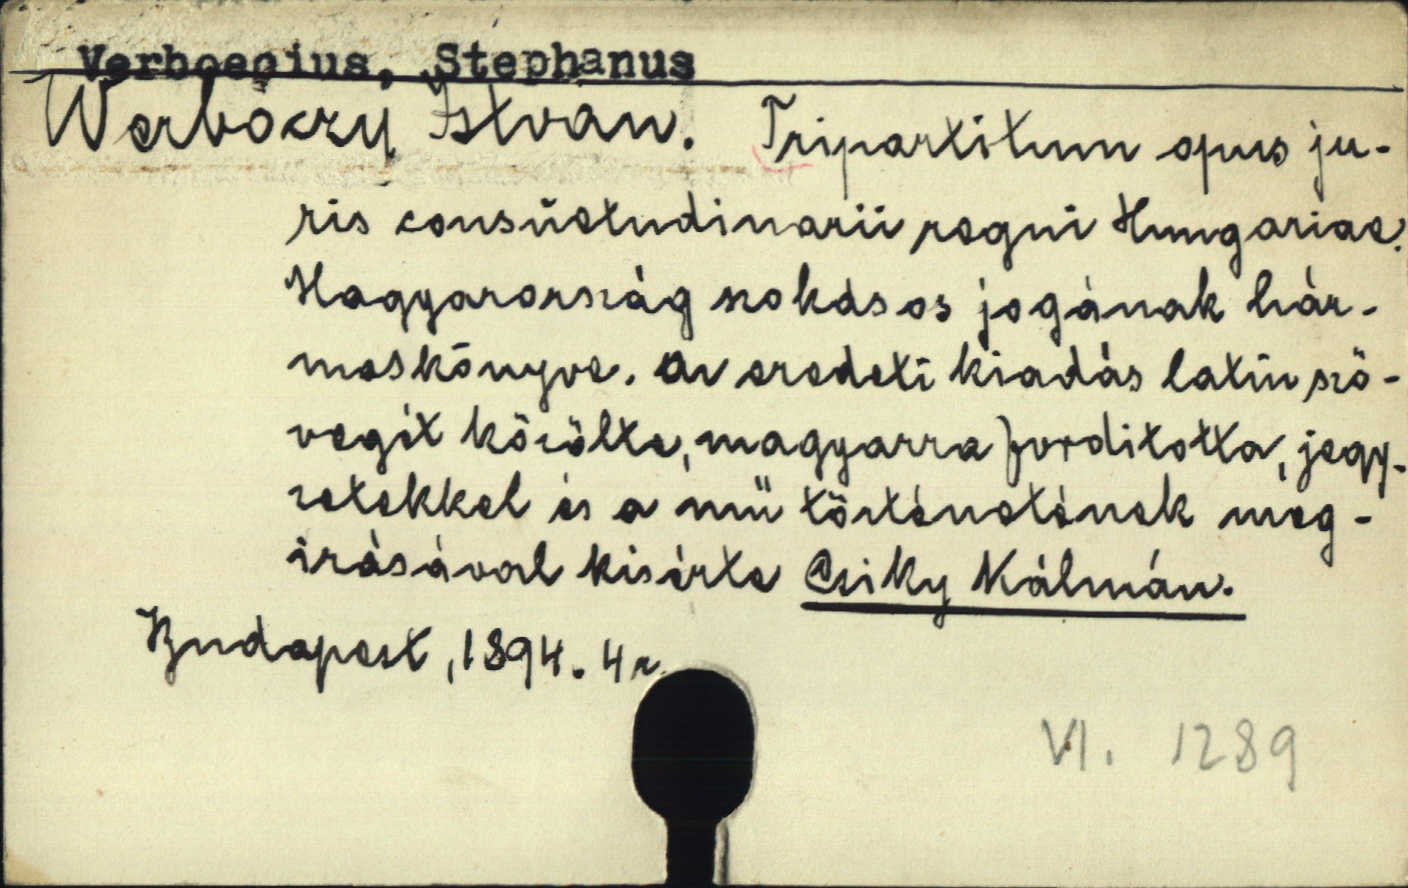 Verboecius, Stephanus
Werbőczy István. Tripartitum opus ju-
ris consuetudinarii regni Hungariae.
Magyarország szokásos jogának hár-
maskönyve. Az eredeti kiadás latin szö-
vegét közölte, magyarra forditotta, jegy-
zetekkel és a mű történetének meg-
irásával kisérte Csiky Kálmán.
Budapest, 1894. 4r.
VI. 1289